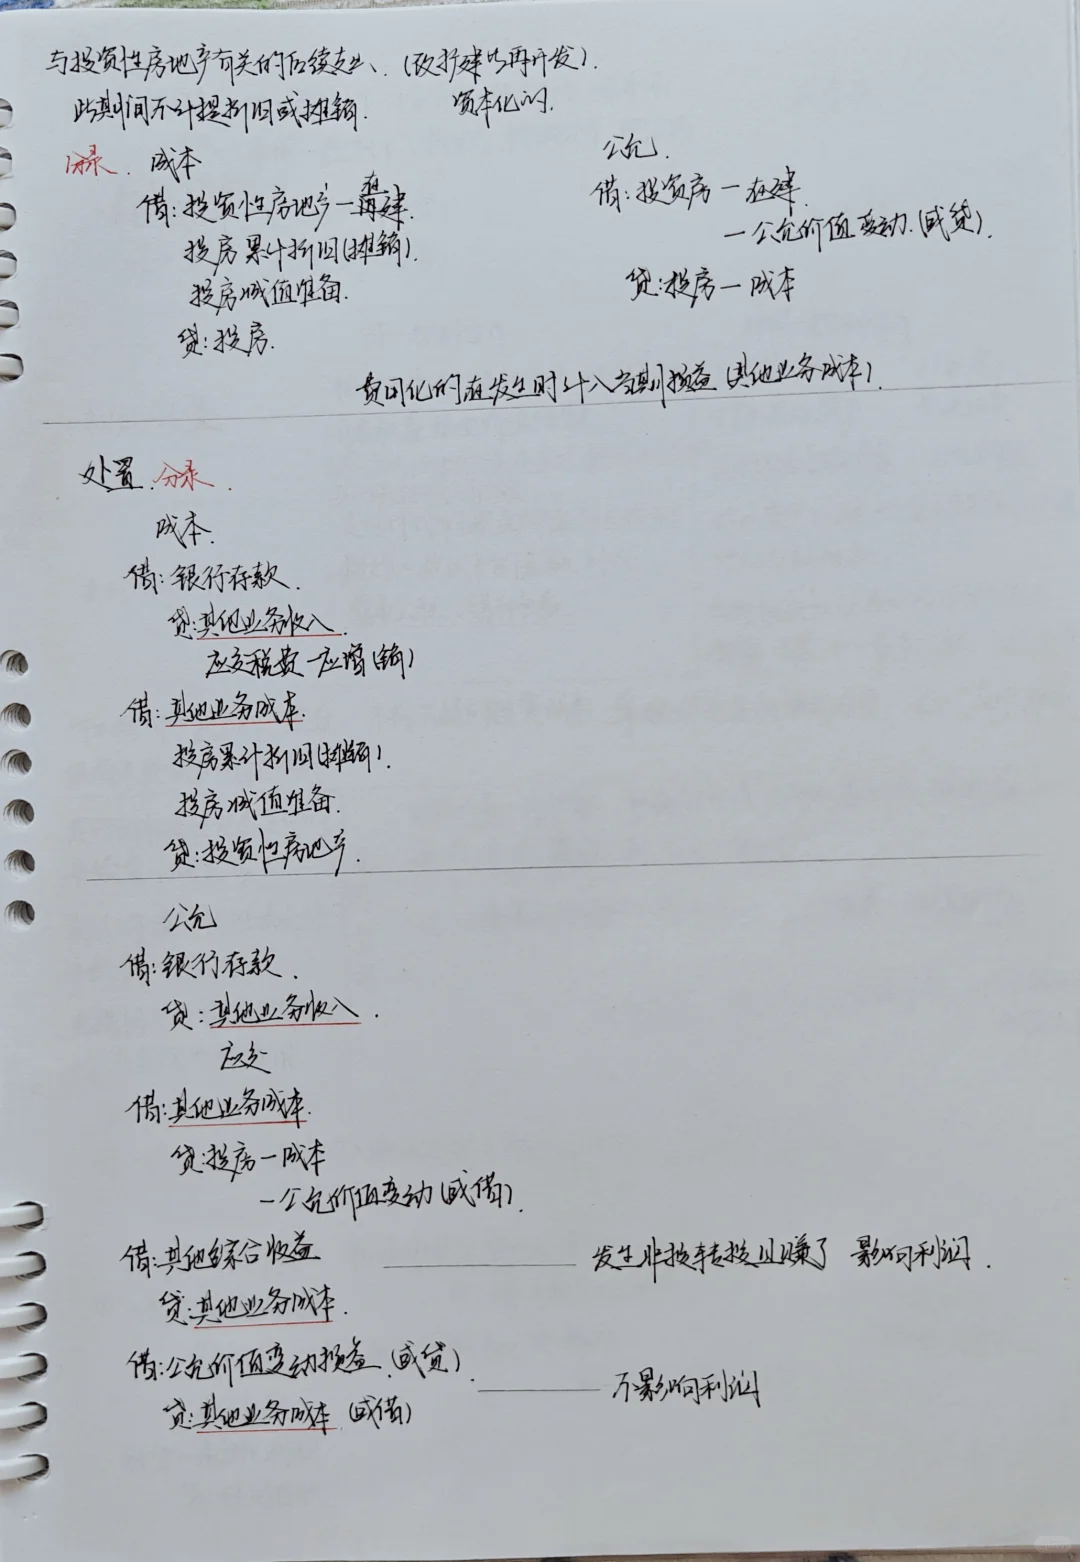 与投资性房地产有关的后续支出、(改扩建以再开发).
此期间不计提折旧或摊销. 资本化的.
分录. 成本
借:投资性房地产—在建.
投房累计折旧(摊销).
投房减值准备.
贷:投房.
公允.
借:投资房—在建.
—公允价值变动.(或贷).
贷:投房—成本
费用化的在发生时计入当期损益(其他业务成本).
处置.分录.
成本.
借:银行存款.
贷:其他业务收入.
应交税费—应增(销)
借:其他业务成本.
投房累计折旧(摊销).
投房减值准备.
贷:投资性房地产.
公允
借:银行存款.
贷:其他业务收入.
应交
借:其他业务成本.
贷:投房—成本
—公允价值变动(或借).
借:其他综合收益 —— 发生非投转投且赚了 影响利润.
贷:其他业务成本.
借:公允价值变动损益.(或贷).
贷:其他业务成本.(或借) —— 不影响利润